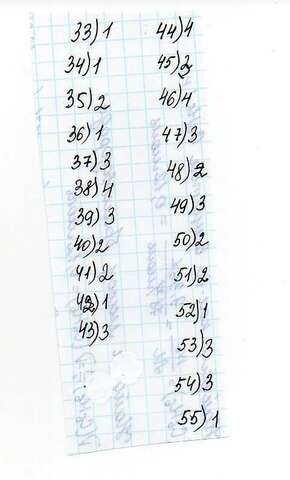 33) 1
34) 1
35) 2
36) 1
37) 3
38) 4
39) 3
40) 2
41) 2
42) 1
43) 3
44) 4
45) 3
46) 4
47) 3
48) 2
49) 3
50) 2
51) 2
52) 1
53) 3
54) 3
55) 1